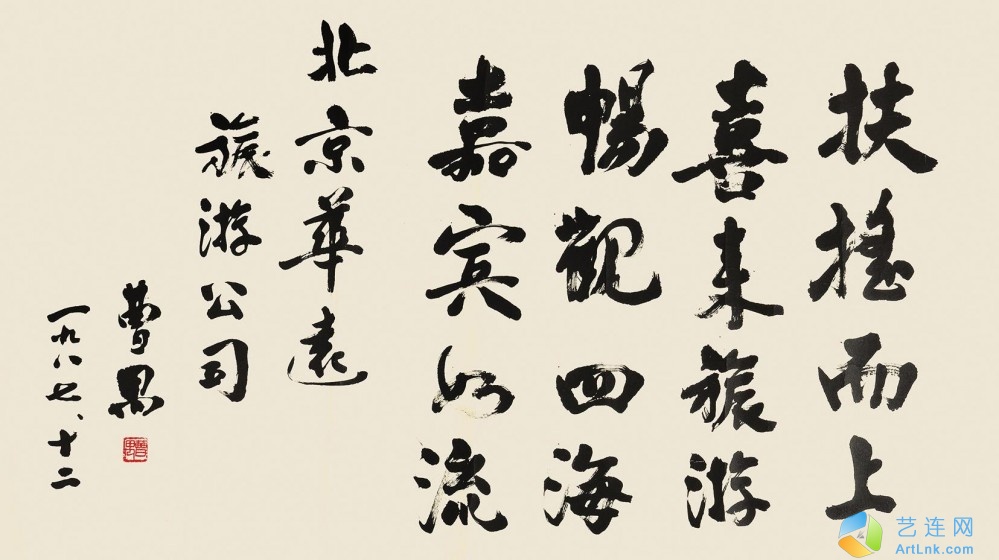 扶摇而上
喜来旅游
暢观四海
嘉宾如流
北京華远
旅游公司
曹禺
一九八七、十二
艺连网
ArtLnk.com